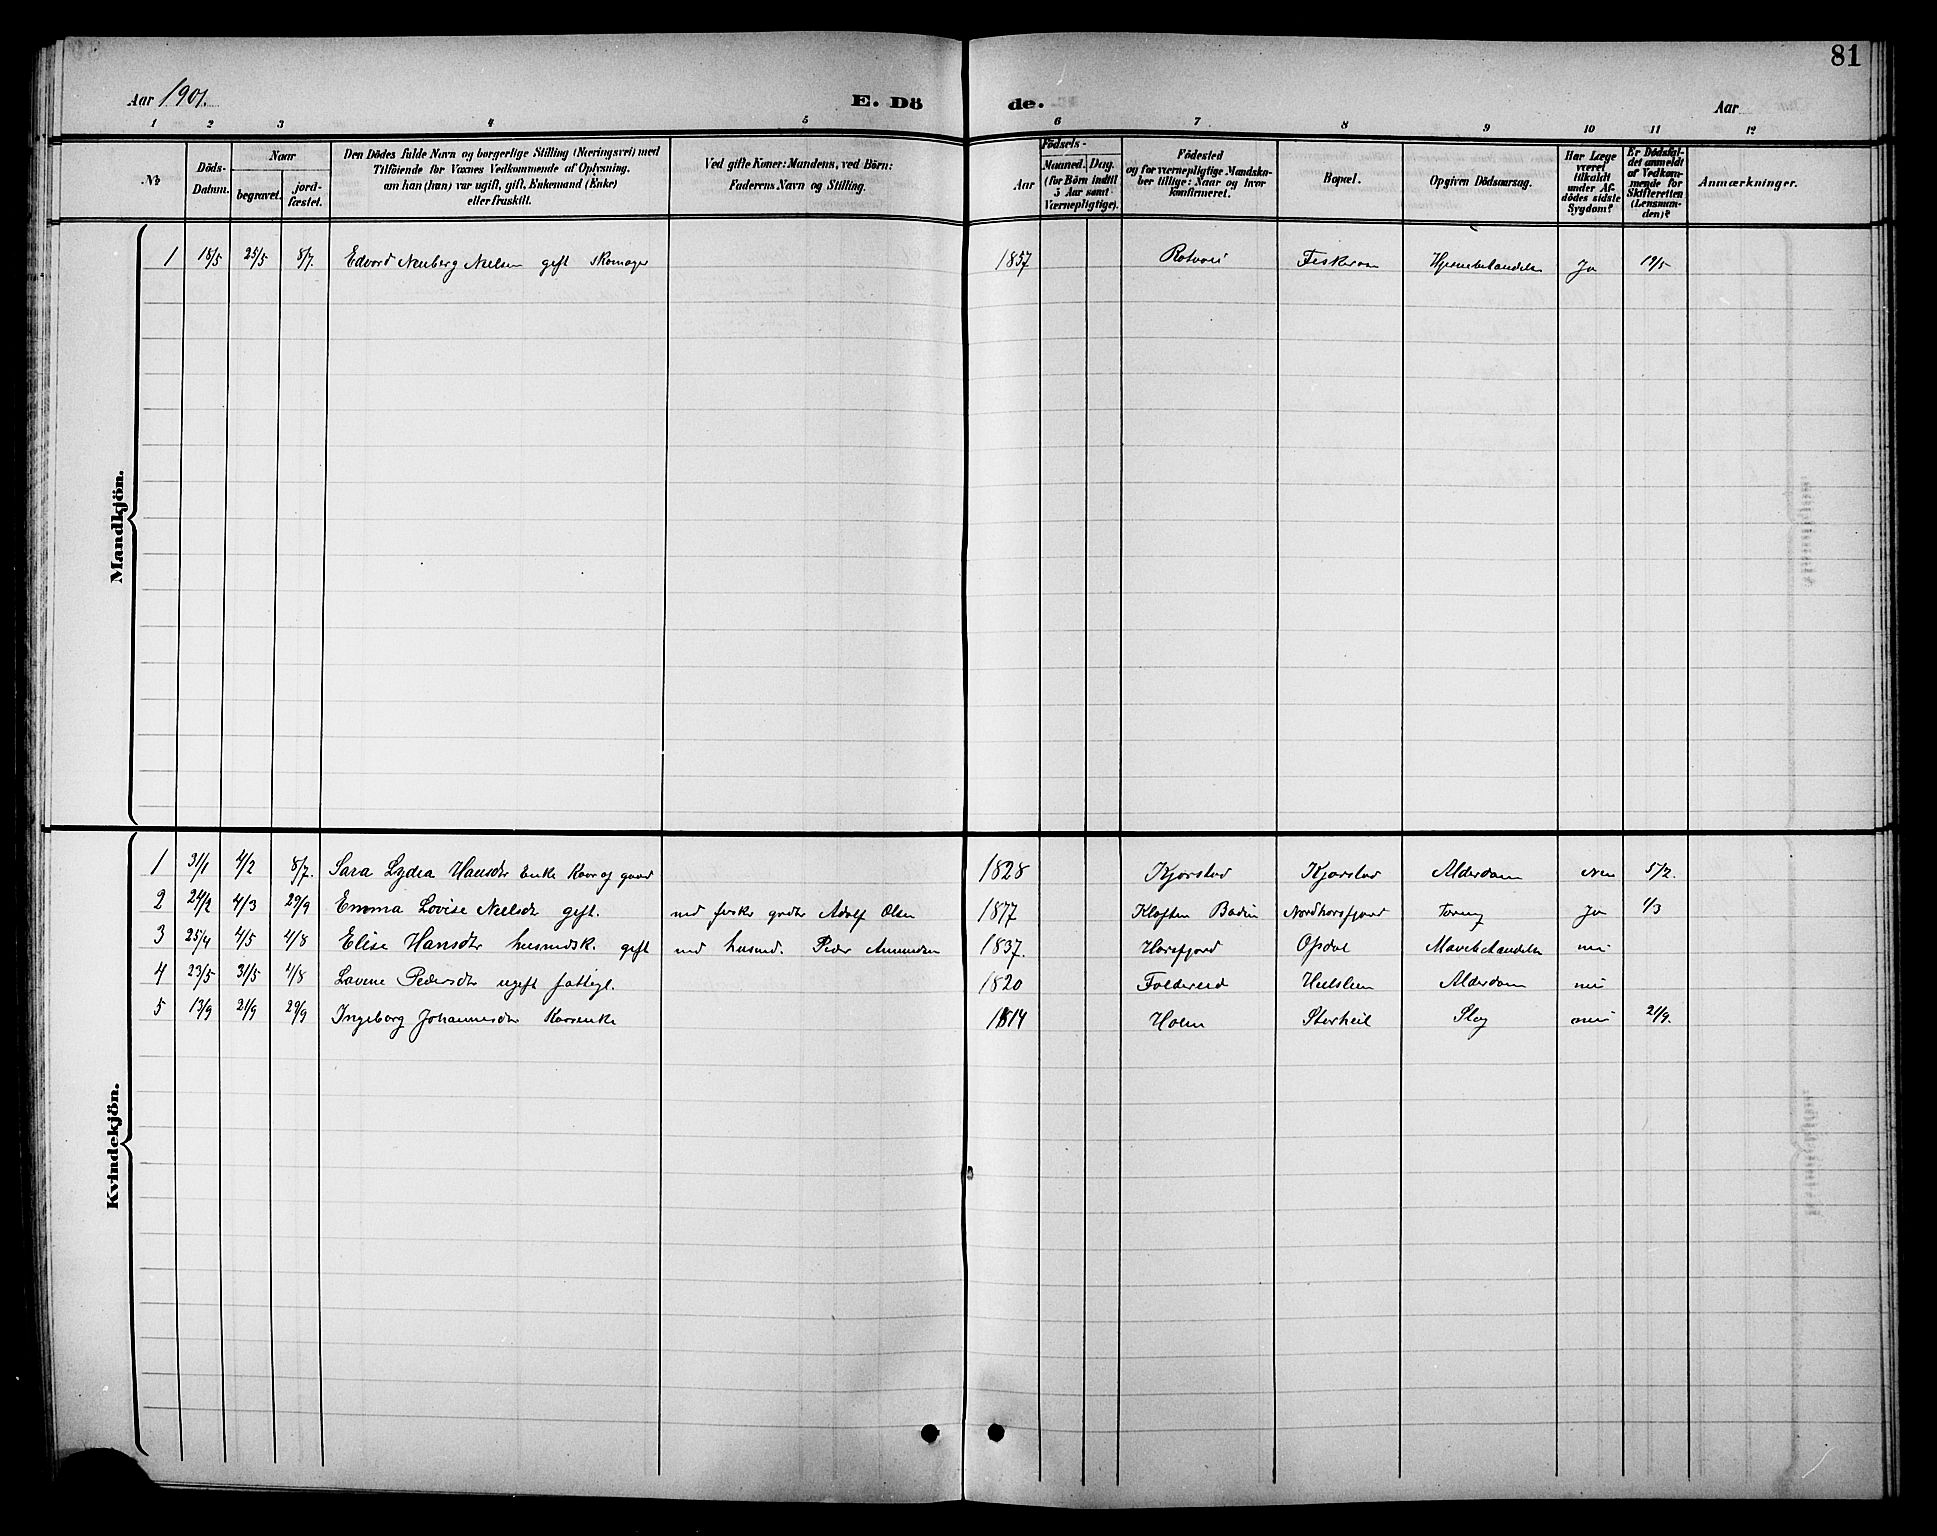 81
Aar 1901. E. Dö de. Aar
1 2 3 4 5 6 7 8 9 10 11 12
No
Döds-Datum.
Naar
begravet.
jord-fæstet.
Den Dödes fulde Navn og borgerlige Stilling (Næringsvei) med
Tilföiende for Voxnes Vedkommende af Oplysning,
om han (hun) var ugift, gift, Enkemand (Enke)
eller fraskilt.
Ved gifte Koner: Mandens, ved Börn:
Faderens Navn og Stilling.
Födsels-
Aar
Maaned. Dag.
(for Börn indtil
5 Aar samt
Værnepligtige).
Födested
og for værnepligtige Mandska-
ber tillige: Naar og hvor
konfirmeret.
Bopæl.
Opgiven Dödsaarsag.
Har Læge
været
tilkaldt
under Af-
dödes sidste
Sygdom?
Er Dödsfal-
det anmeldt
af Vedkom-
mende for
Skifteretten
(Lensman-
den)?
Anmærkninger.
Mandkjön.
1 18/5 25/5 8/7. Edvard Neuberg Nielsen gift skomager 1857 Ja 19/5
Kvindekjön.
1 31/1 4/2 8/7. Sara Lydia Hansdtr Enke 1828 Kjørstad Kjørstad Alderdom nei 5/2.
2 24/2 4/3 29/9 Emma Lovise Nielsdt gift. med Adolf Olsen 1877 Kloften Bodin Nordhorsfjord Tæring Ja 1/3
3 25/4 4/5 4/8 Elise Hansdtr husmdsk. gift med husmd. Peder Amundsen 1837. Horsfjord Opdal nei
4 23/5 31/5 4/8 Lovine Pedersdtr ugift fattigl. 1820 Foldereid Alderdom nei
5 13/9 21/9 29/9 Ingeborg Johannesdtr 1814 Holm Storheil Slag nei 21/9.